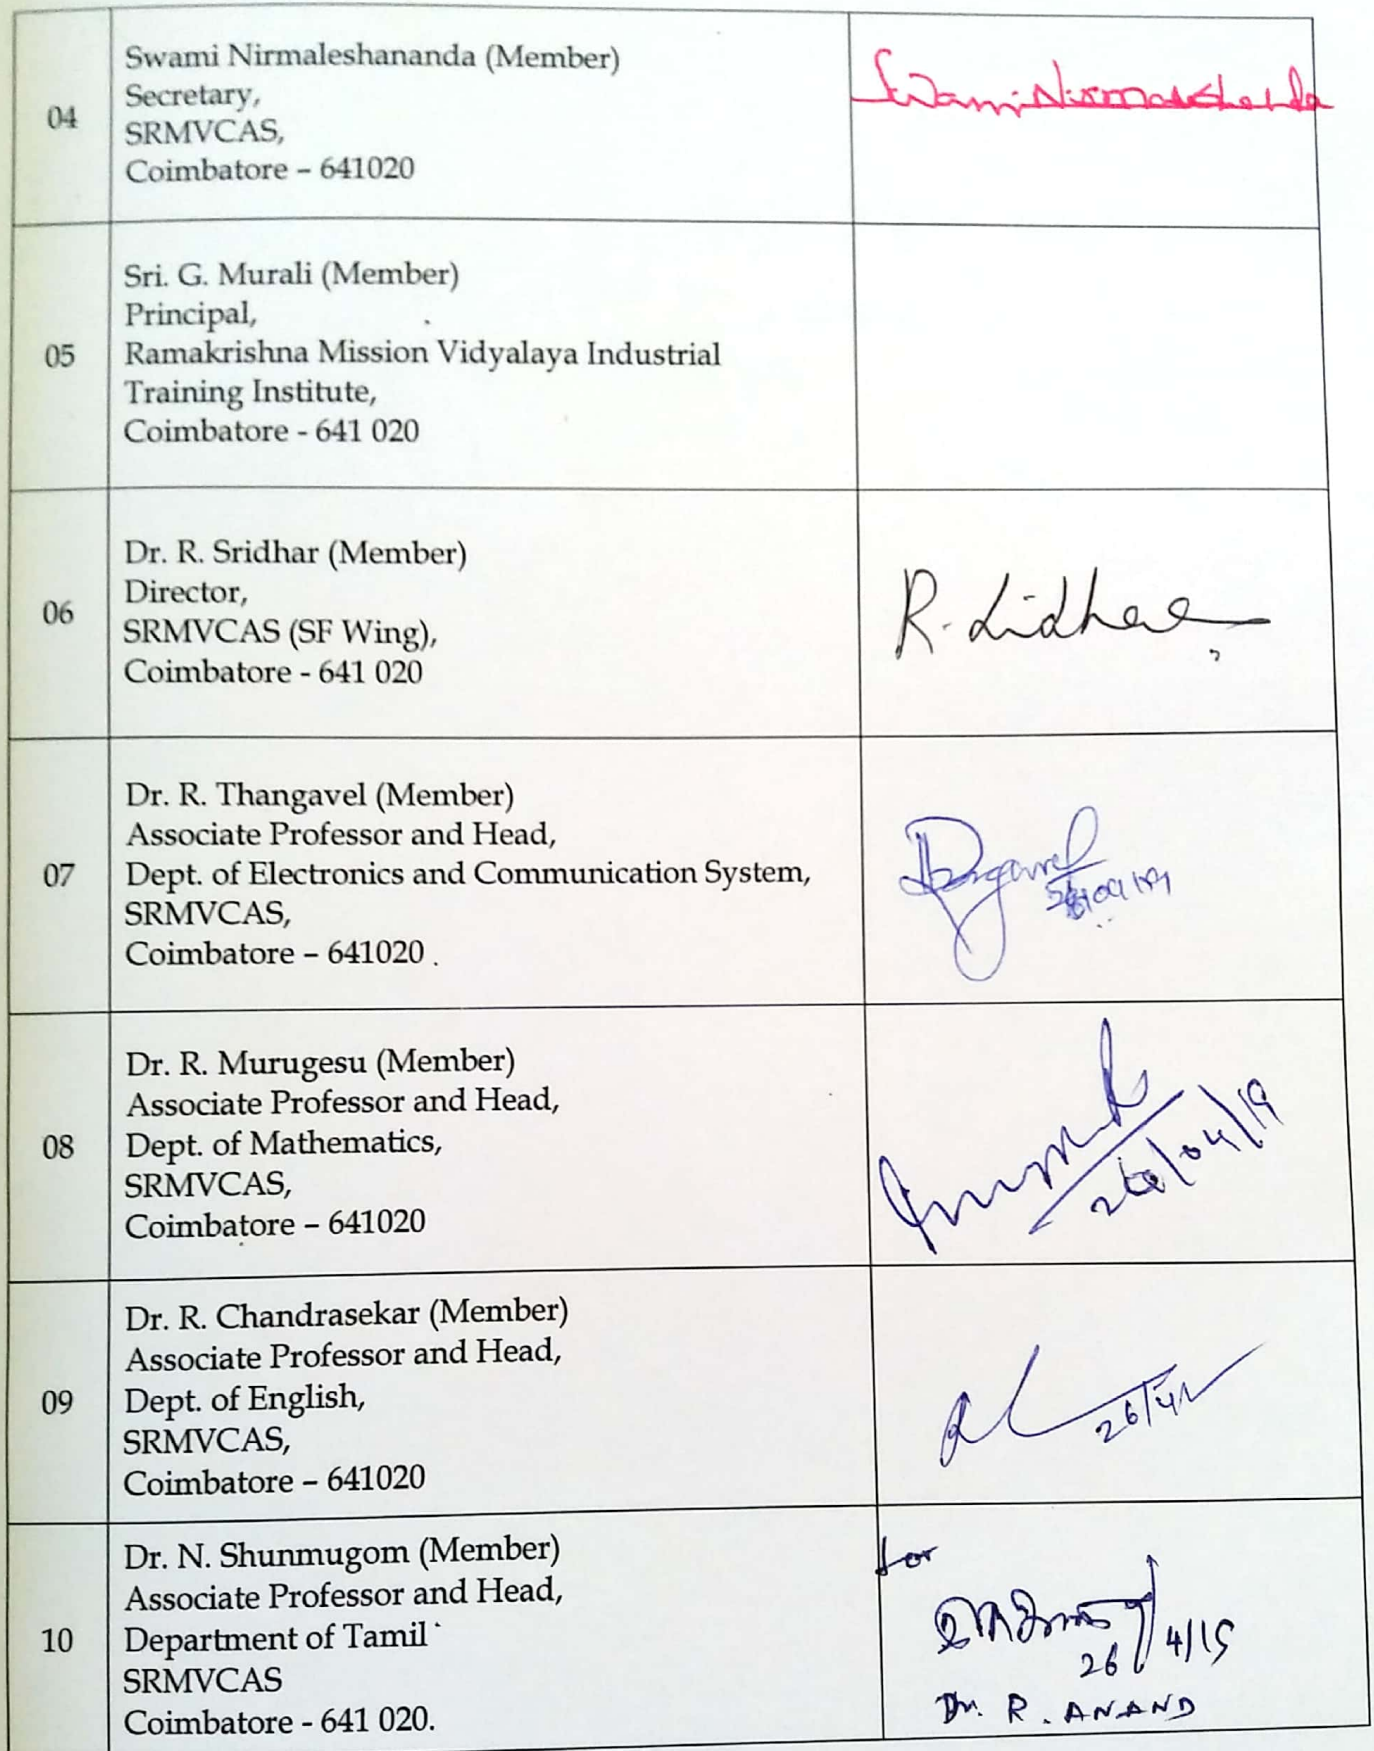 04
Swami Nirmaleshananda (Member)
Secretary,
SRMVCAS,
Coimbatore – 641020
Swami Nirmaleshananda
05
Sri. G. Murali (Member)
Principal,
Ramakrishna Mission Vidyalaya Industrial
Training Institute,
Coimbatore - 641 020
06
Dr. R. Sridhar (Member)
Director,
SRMVCAS (SF Wing),
Coimbatore - 641 020
R. Sridhar
07
Dr. R. Thangavel (Member)
Associate Professor and Head,
Dept. of Electronics and Communication System,
SRMVCAS,
Coimbatore – 641020
08
Dr. R. Murugesu (Member)
Associate Professor and Head,
Dept. of Mathematics,
SRMVCAS,
Coimbatore – 641020
26/04/19
09
Dr. R. Chandrasekar (Member)
Associate Professor and Head,
Dept. of English,
SRMVCAS,
Coimbatore – 641020
10
Dr. N. Shunmugom (Member)
Associate Professor and Head,
Department of Tamil
SRMVCAS
Coimbatore - 641 020.
for
26/4/19
Dr. R. ANAND